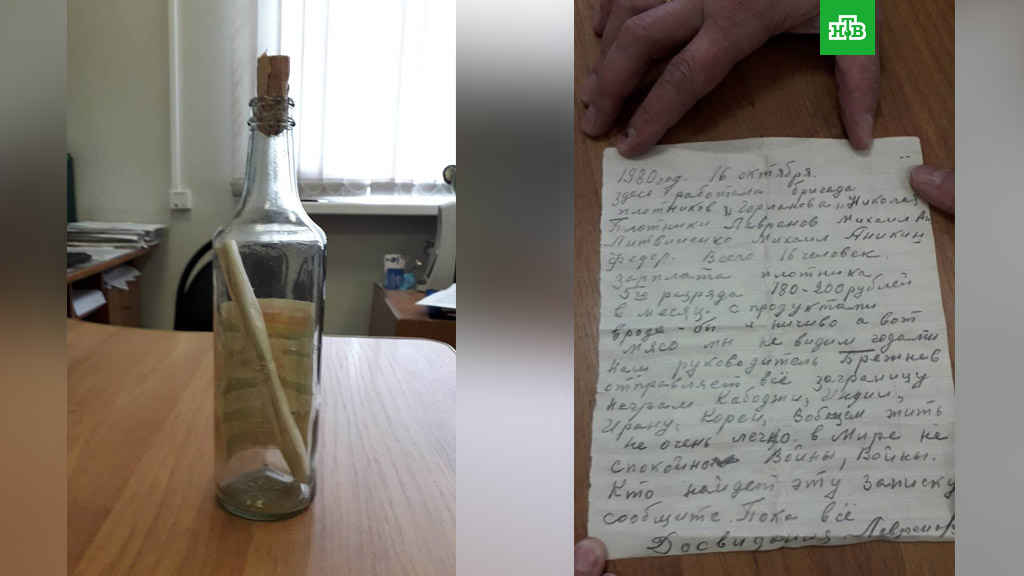 НТВ
1980 год. 16 октября.
здесь работала бригада
плотников Николая
Плотники Лавренов Михаил
Литвиненко Михаил Аникин
Федор. Всего 16 человек.
Зарплата плотника
5го разряда 180-200 рублей
в месяц. с продуктами
вроде-бы и ничиво а вот
мясо мы не видим годами
наш руководитель Брежнев
отправляет всё заграницу
неграм Кабоджи, Индии,
Ирану. Кореи, Вобщем жить
не очень легко. в Мире не
спокойно Войны, Войны.
Кто найдет эту записку
сообщите. Пока всё
Досвидания Лавренов